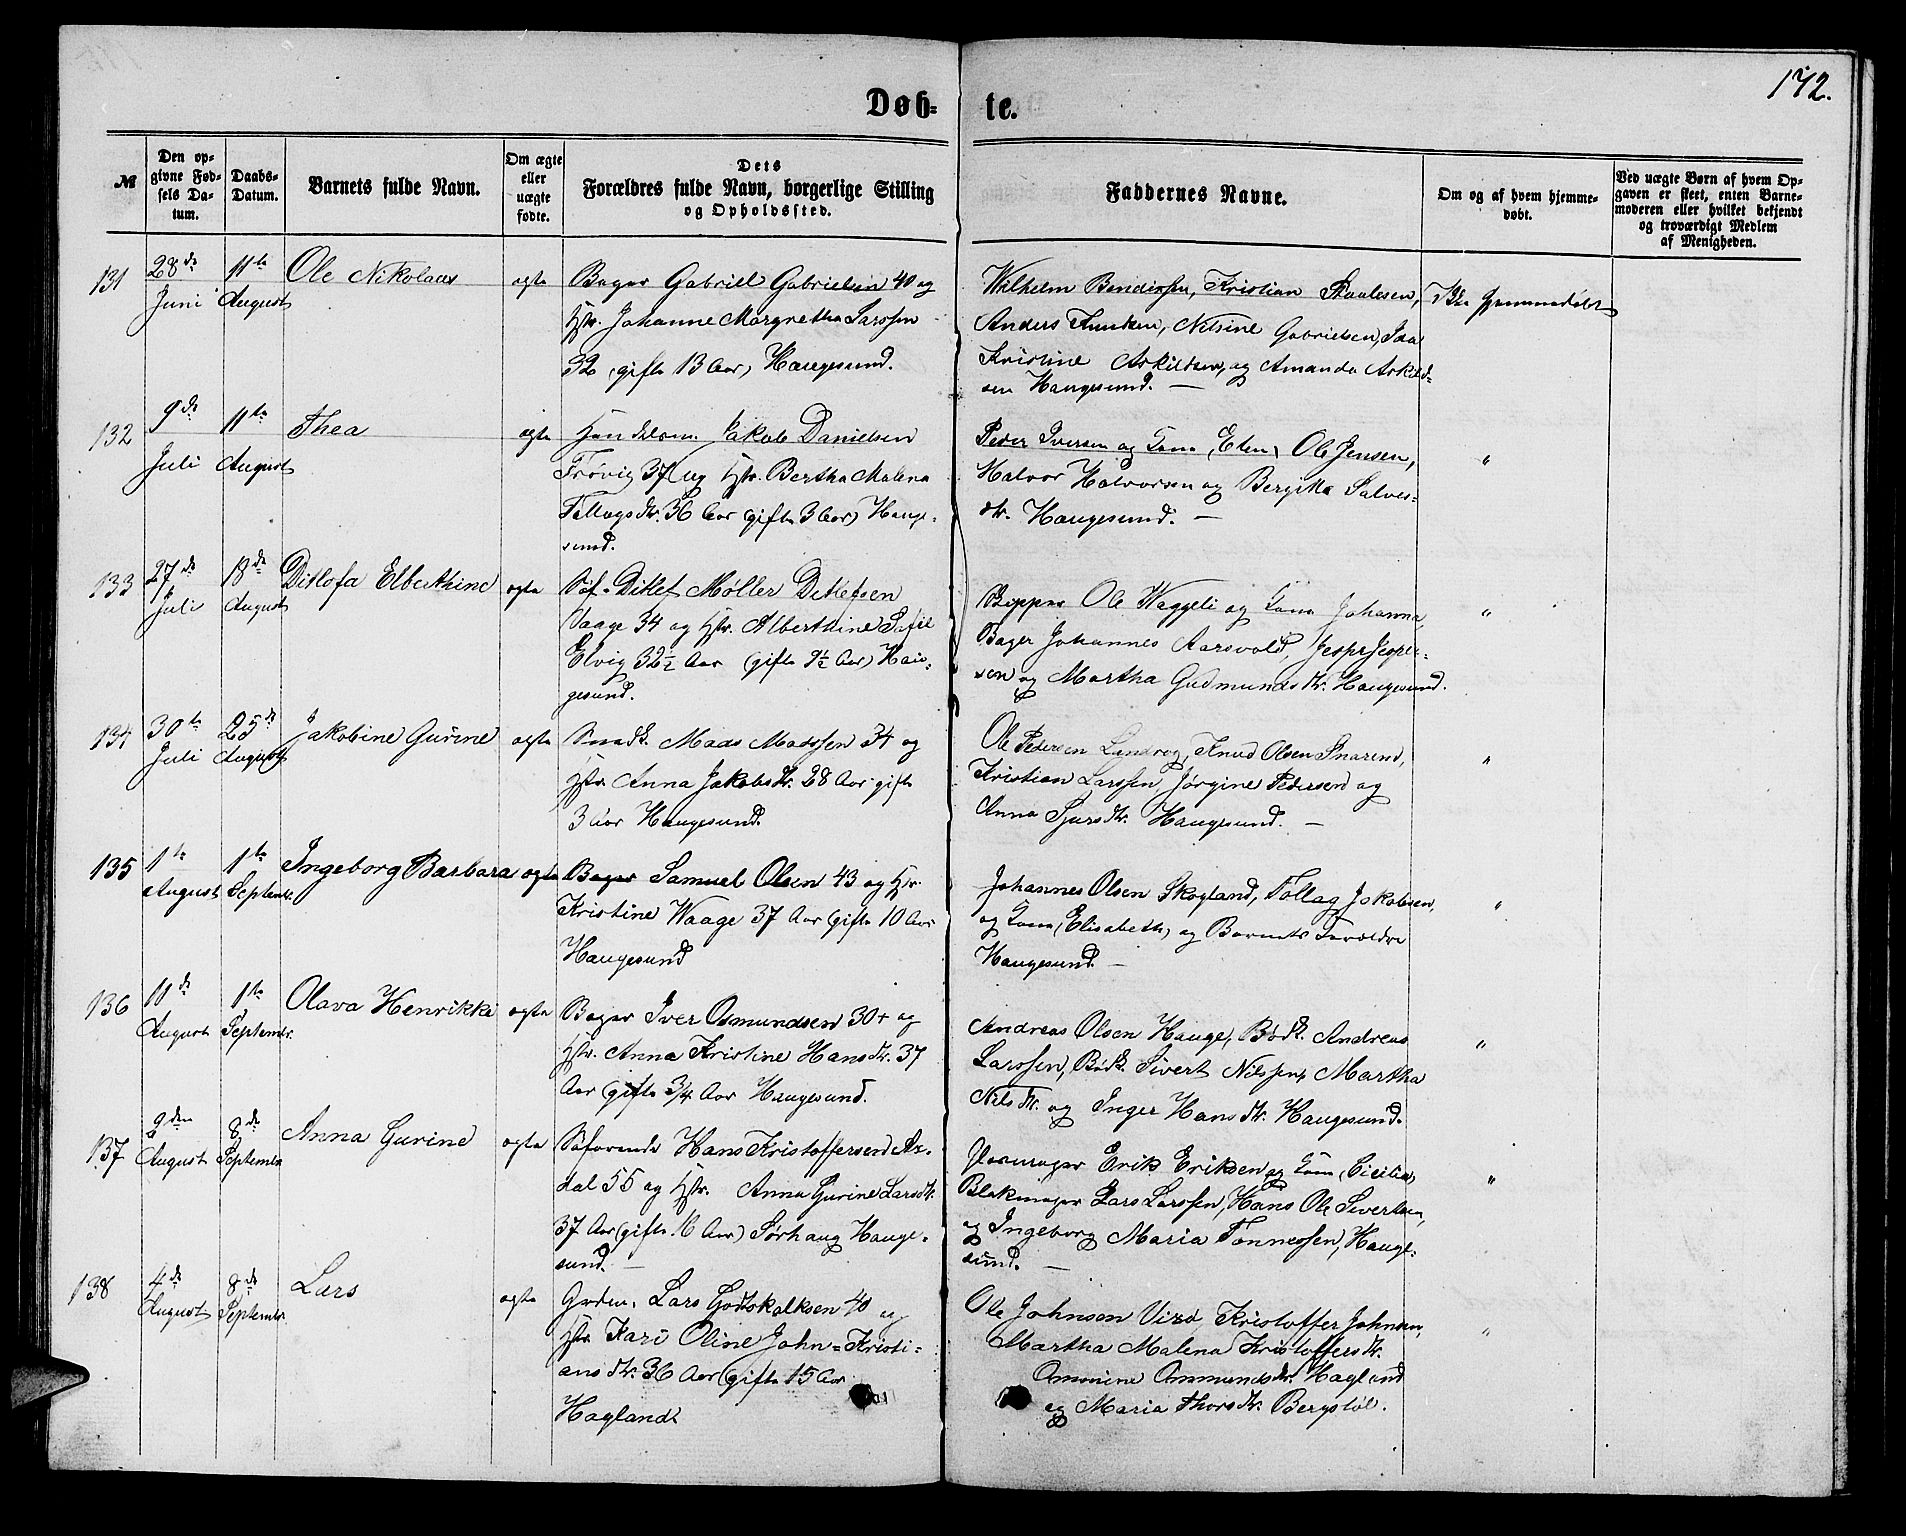 172.
Døb-
te.
№
Den op-
givne Fød-
sels Da-
tum.
Daabs-
Datum.
Barnets fulde Navn.
Om ægte
eller
uægte
fødte.
Dets
Forældres fulde Navn, borgerlige Stilling
og Opholdssted.
Faddernes Navne.
Om og af hvem hjemme-
døbt.
Ved uægte Børn af hvem Op-
gaven er skeet, enten Barne-
moderen eller hvilket bekjendt
og troværdigt Medlem
af Menigheden.
131
28de
Juni
11te
August
Ole Nikolaas
ægte
Bager Gabriel Gabrielsen 40 og
Hstr. Johanne Margrethe Larssen
32 (gifte 13 Aar) Haugesund.
Wilhelm Bendixsen, Kristian Staalesen,
Anders Knutsen, Nilsine Gabrielsen, Ida
Kristine Askildsen, og Amanda Askild-
sen Haugesund. —
Ikke hjemmedøbt
132
9de
Juli
11te
August
Thea
ægte
Handelsm. Jakob Danielsen
Frøvig 37 og Hstr. Bertha Malena
Tollagsdtr. 36 Aar (gifte 3 Aar) Hauge-
sund.
Peder Iversen og Kone, Elen, Ole Jensen,
Halvor Halvorsen og Bergitta Salves-
dtr. Haugesund. —
"
133
27de
Juli
18de
August
Ditlofa Elberthine
ægte
Søf. Ditlef Møller Ditlefsen
Vaage 34 og Hstr. Alberthine Sofie
Elvig 32½ Aar (gifte 9½ Aar) Hau-
gesund.
Skipper Ole Waggeli og Kone Johanna
Bager Johannes Aarsvold, Jesper Jesper-
sen og Martha Gudmundsdtr. Haugesund.
"
134
30te
Juli
25de
August
Jakobine Gurine
ægte
Snedk. Mads Madssen 34 og
Hstr. Anna Jakobsdtr. 28 Aar gifte
3 Aar Haugesund.
Ole Pedersen Landvog, Knud Olsen Snarene,
Kristian Larssen, Jørgine Pedersen og
Anna Sjursdtr. Haugesund. —
"
135
1te
August
1te
Septembr.
Ingeborg Barbara
ægte
Bager Samuel Olsen 43 og Hstr.
Kristine Waage 37 Aar (gifte 10 Aar
Haugesund
Johannes Olsen Skogland, Tollag Jakobsen,
og Kone (Elisabeth) og Barnets Forældre
Haugesund. —
"
136
11de
August
1te
Septembr.
Olava Henrikke
ægte
Bager Iver Osmundsen 30+ og
Hstr. Anna Kristine Hansdtr. 37
Aar (gifte 3/4 Aar Haugesund.
Andreas Olsen Hauge, Bødk. Andreas
Larssen, Bødk. Sivert Nilssen, Martha
Nilsdtr. og Inger Hansdtr. Haugesund.
"
137
9den
August
8de
Septembr
Anna Gurine
ægte
Søfarende Hans Kristoffersen Ar-
dal 55 og Hstr. Anna Gurine Larsdtr.
37 Aar (gifte 16 Aar) Sørhaug Hauge-
sund. —
Uhrmager Erik Eriksen og Kone (Cicilia)
Blokmager Lars Larssen, Hans Ole Sivertsen,
og Ingeborg Maria Tønnessen, Hauge-
sund. —
"
138
4de
August
8de
Septembr.
Lars
ægte
Grdm. Lars Godtskalksen 40 og
Hstr. Kari Oline John-Kristi-
ansdtr. 36 Aar (gifte 15 Aar
Hagland.
Ole Johnsen Visd, Kristoffer Johnsen,
Martha Malena Kristoffersdtr.
Omonine Ommundsdtr. Hagland
og Maria Thorsdtr. Bergstøl.
"